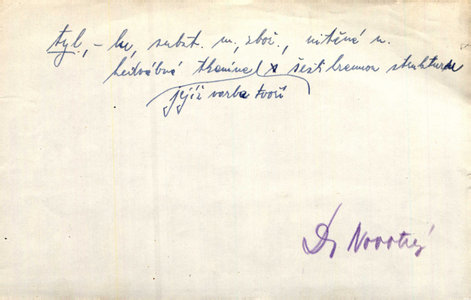 tyl, -lu, subst. m., zbož., nitěná n.
hedvábná tkanina s šestihrannou strukturou
jejíž vazba tvoří
Dr Novotný